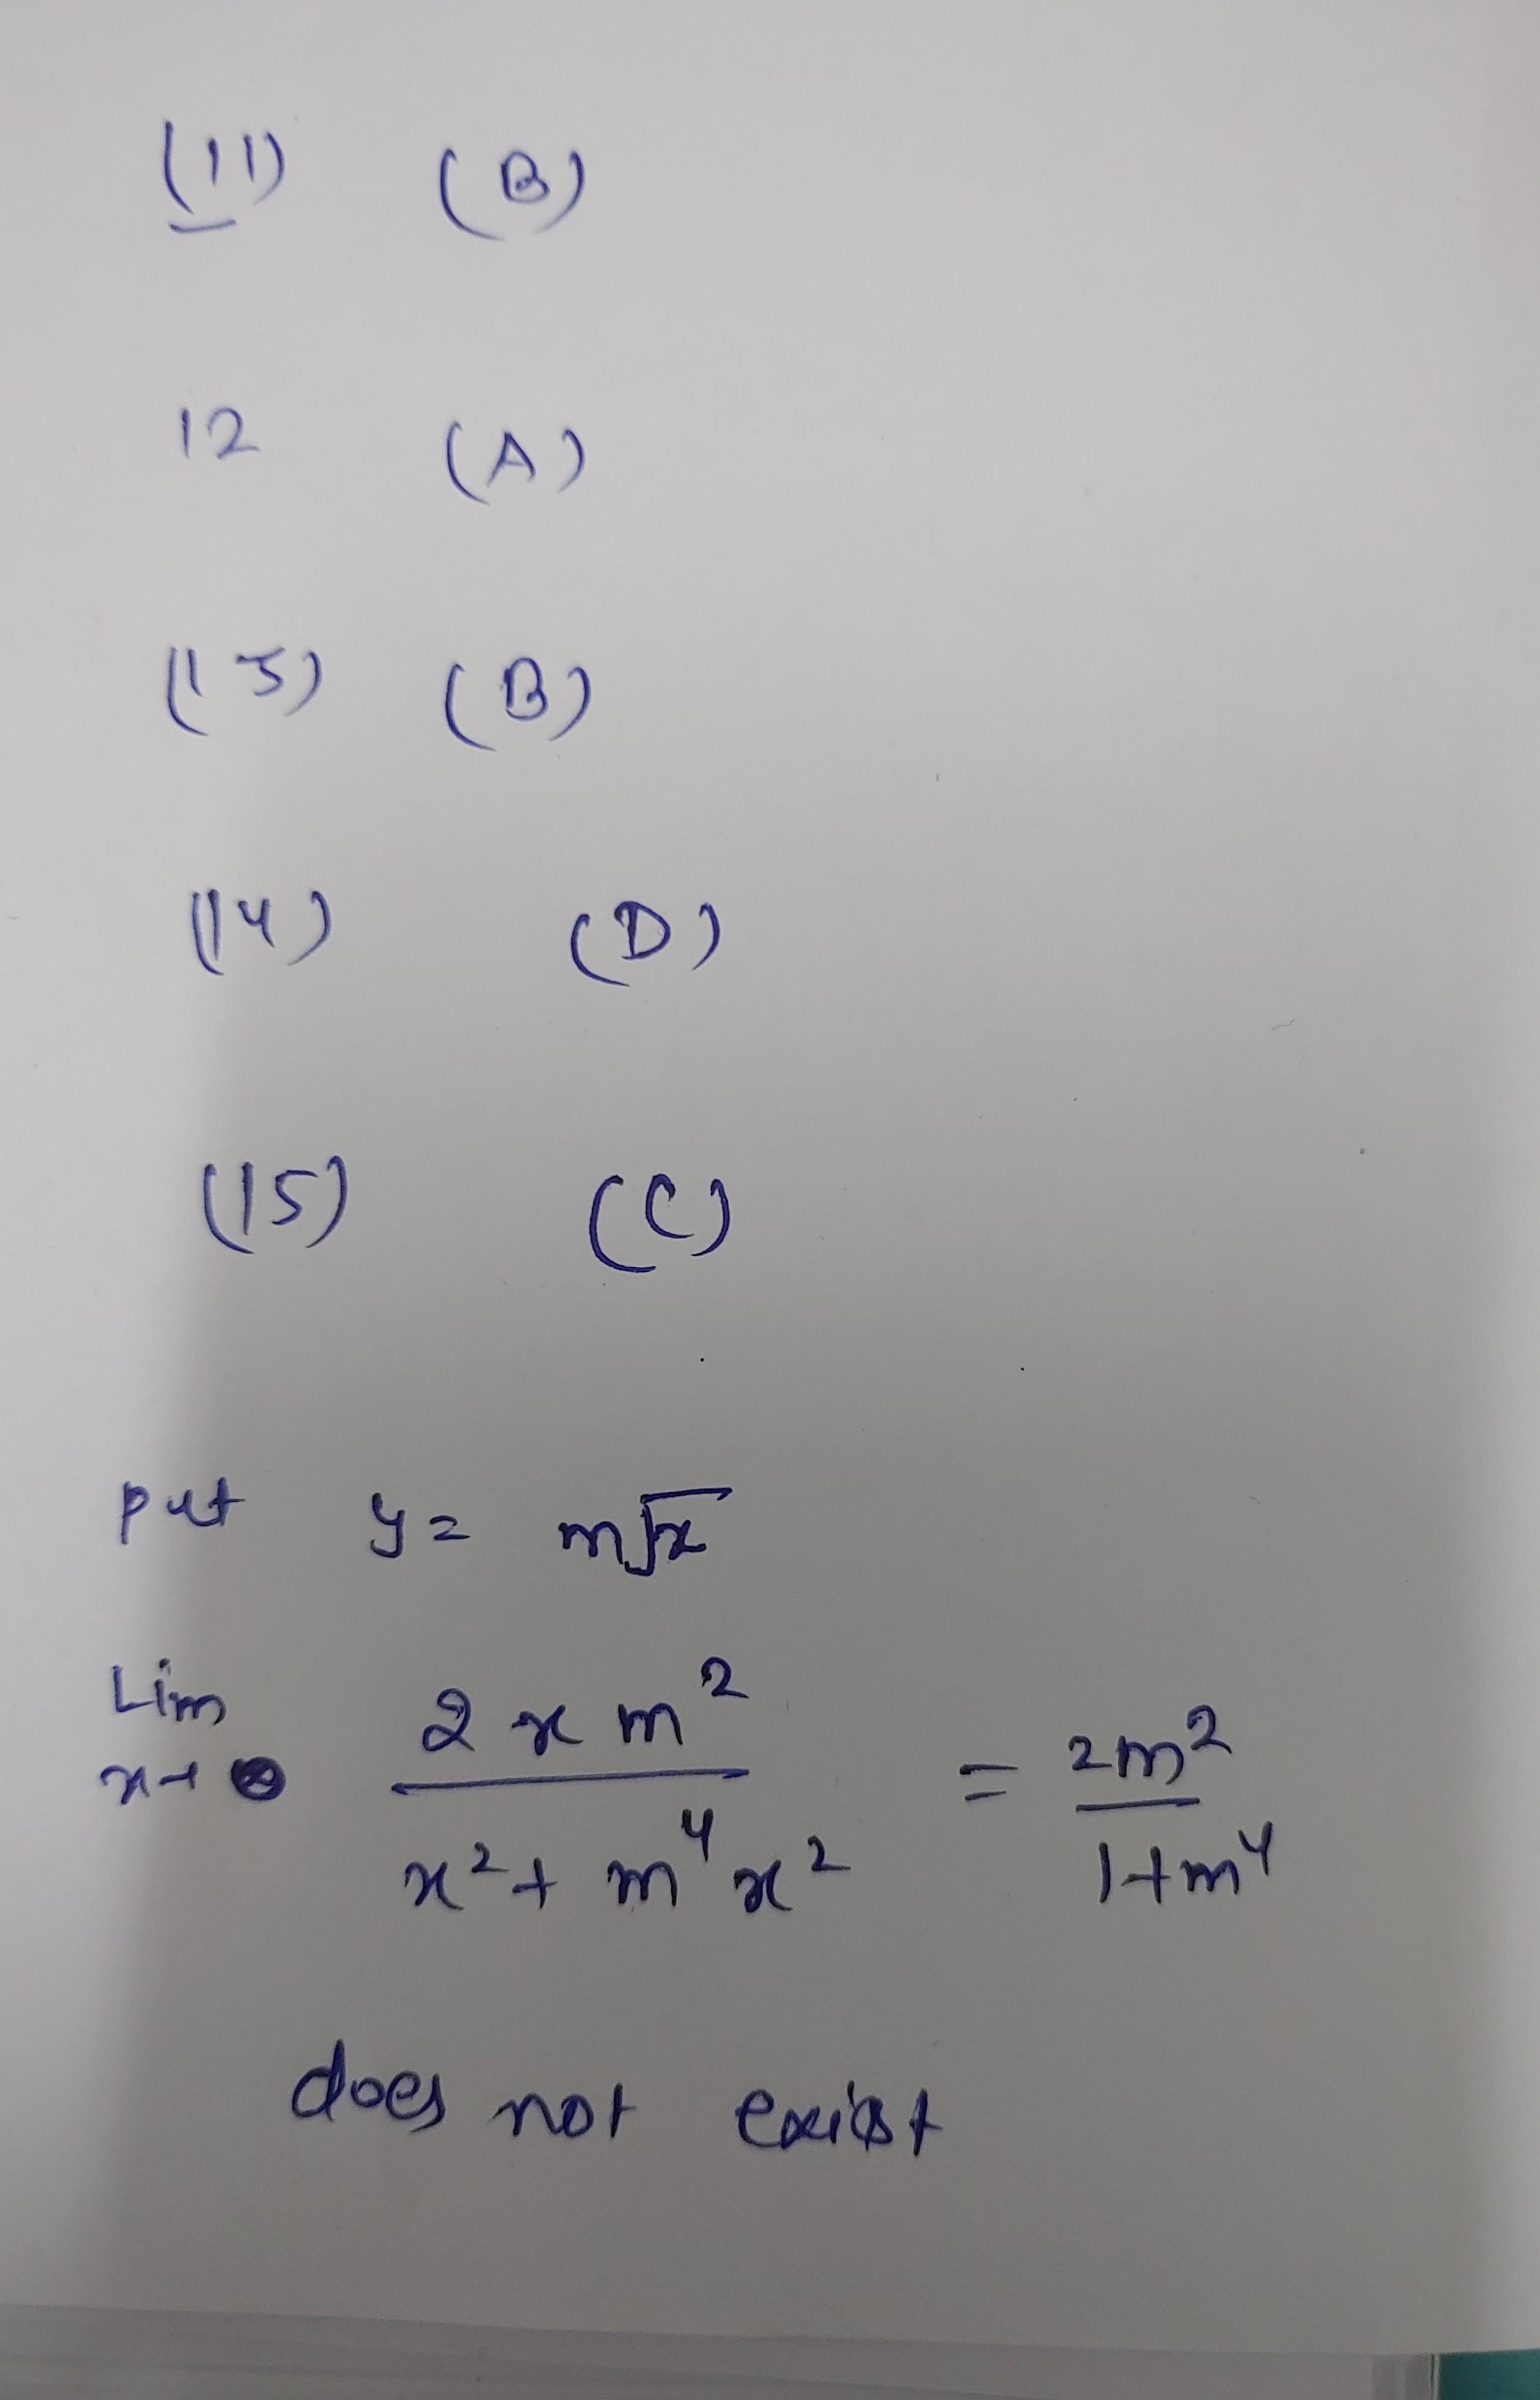 (11) (B)
12 (A)
(13) (B)
(14) (D)
(15) (C)
put y = m√x
Lim 2xm² = 2m²
x→ x² + m⁴x² 1+m⁴
does not exist